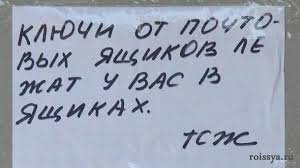 КЛЮЧИ ОТ ПОЧТО-
ВЫХ ЯЩИКОВ ЛЕ
ЖАТ У ВАС В
ЯЩИКАХ.
ТСЖ
roissya.ru